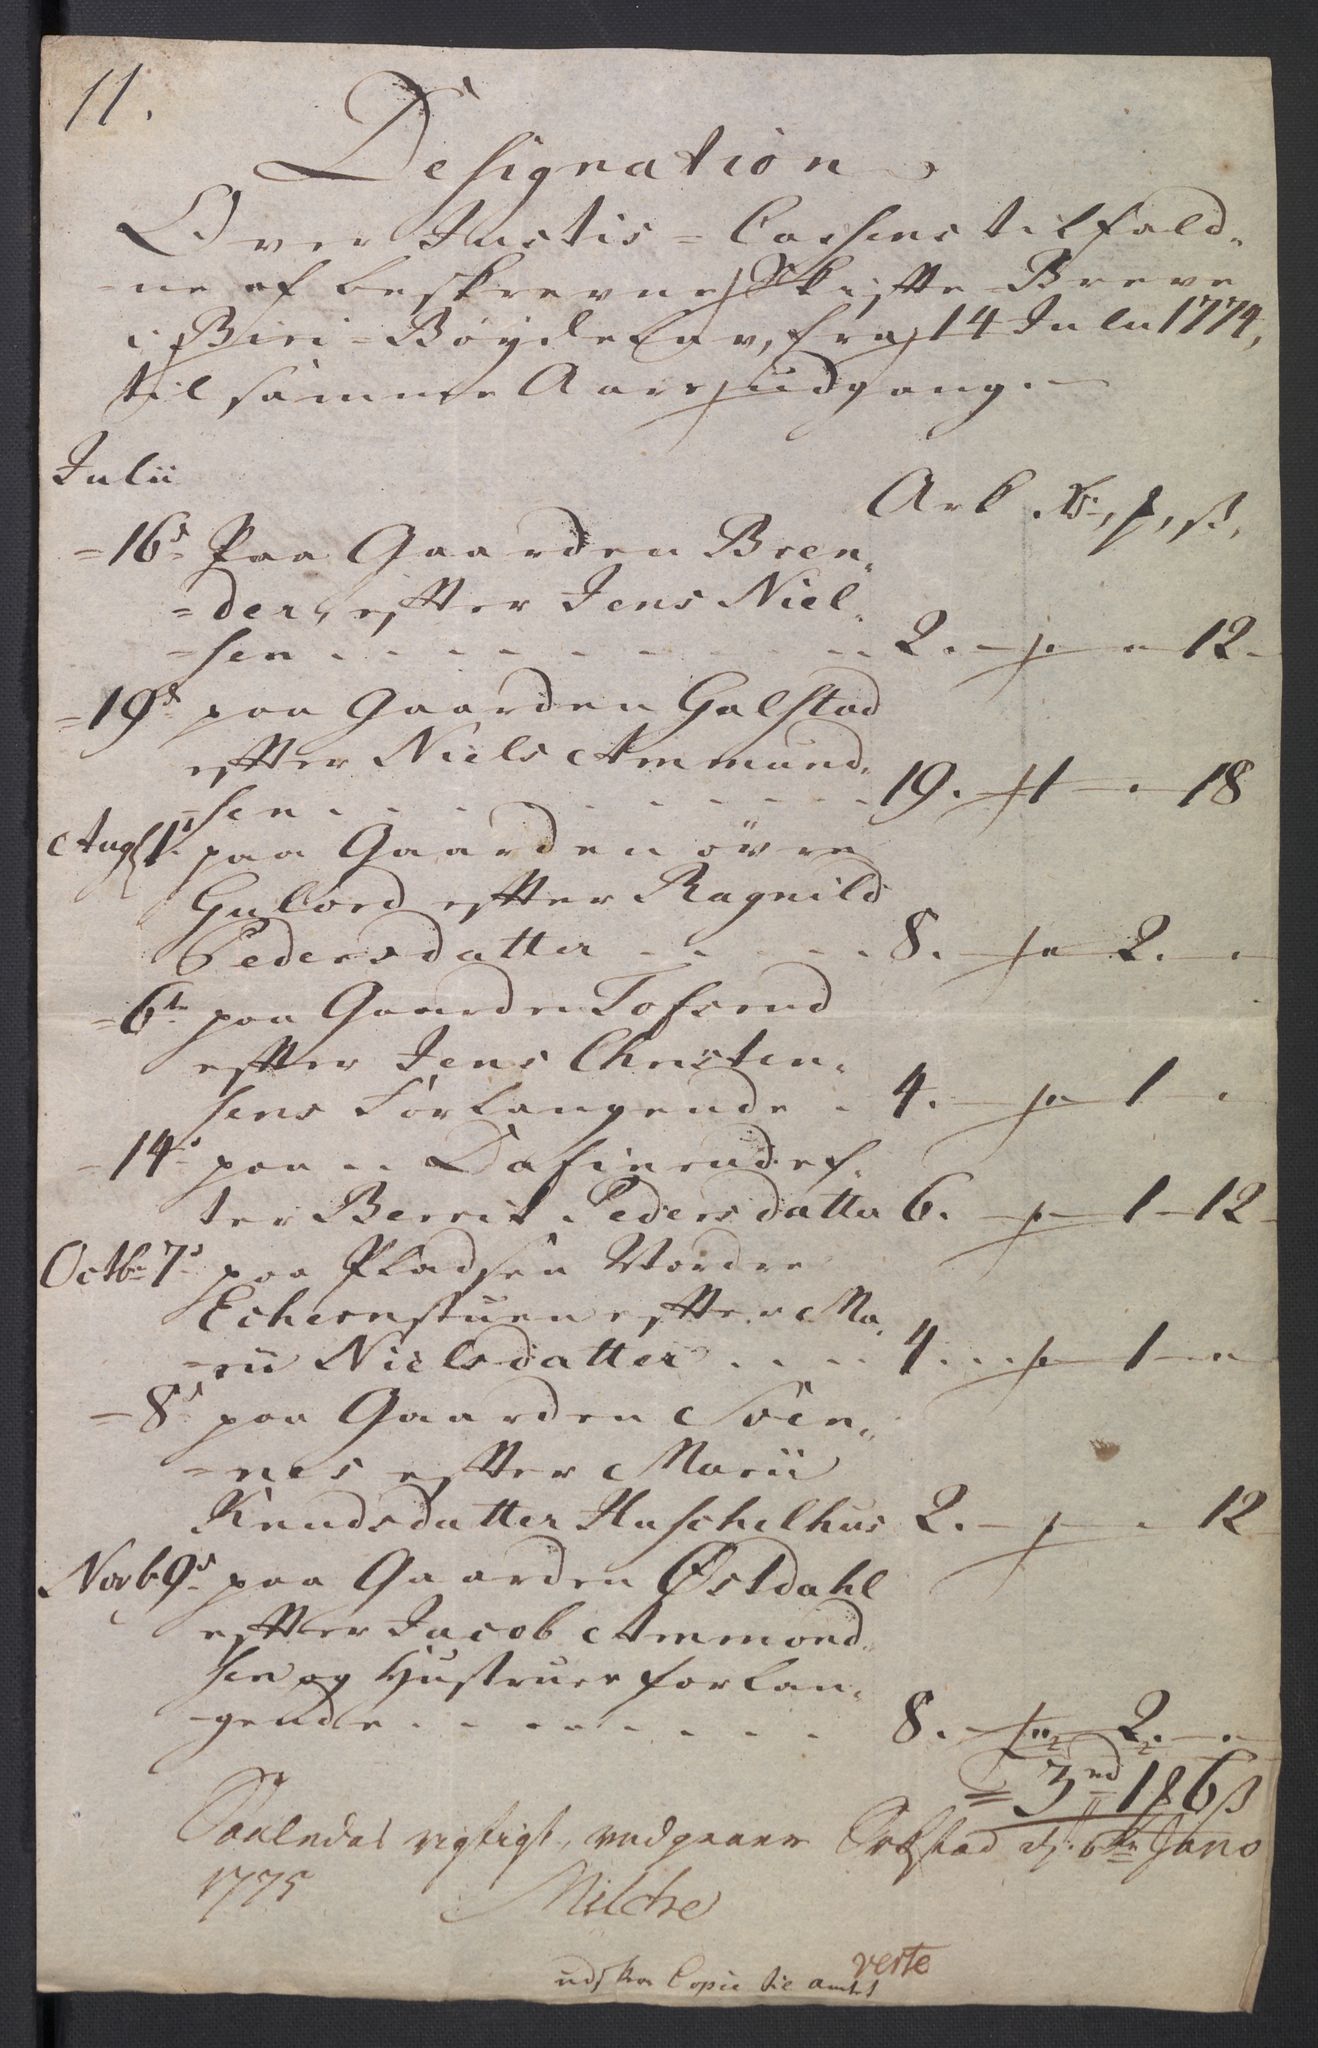 11.
Designation
Over Justis = Cassens tilfald„
„ne af beskrevne Skifte Breve
i Biri = Böyde Lav, fra 14 Julii 1774,
til samme Aars udgang.
Julii
Ark. Rd, ,ß,
= 16d Paa Gaarden Bren„
=der, efter Jens Niel„
=sen . . . . 2. 12.
= 19d paa Gaarden Galstad
efter Niels Ammund„
=sen . . . . 19. 1 18
Aug 1d paa Gaarden övre
Gulord efter Ragnild
Pedersdatter . . . . 8. 2.
= 6te paa Gaarden Tofserud
efter Jens Christen„
sens Forlangende . 4. 1
= 14d paa . . ef„
ter Berrit Pedersdatter 6. 1 12
Octbr 7d paa Pladsen Nordre
Echernstuen efter Ma„
=rii Nielsdatter . . . . 4. 1
= 8d paa Gaarden Sven„
=nes efter Marii
Knudsdatter Haschelhus 2. 12
Novb 9d paa Gaarden Østdahl
efter Jacob Ammond„
sen og Hustrues forlan„
gende . . . . 8. 2.
= 3rd 1 6ß
Saaledes rigtigt, vedgaaer d. 6te Jano
1775 Milche
verte
udskr Copie til amtet